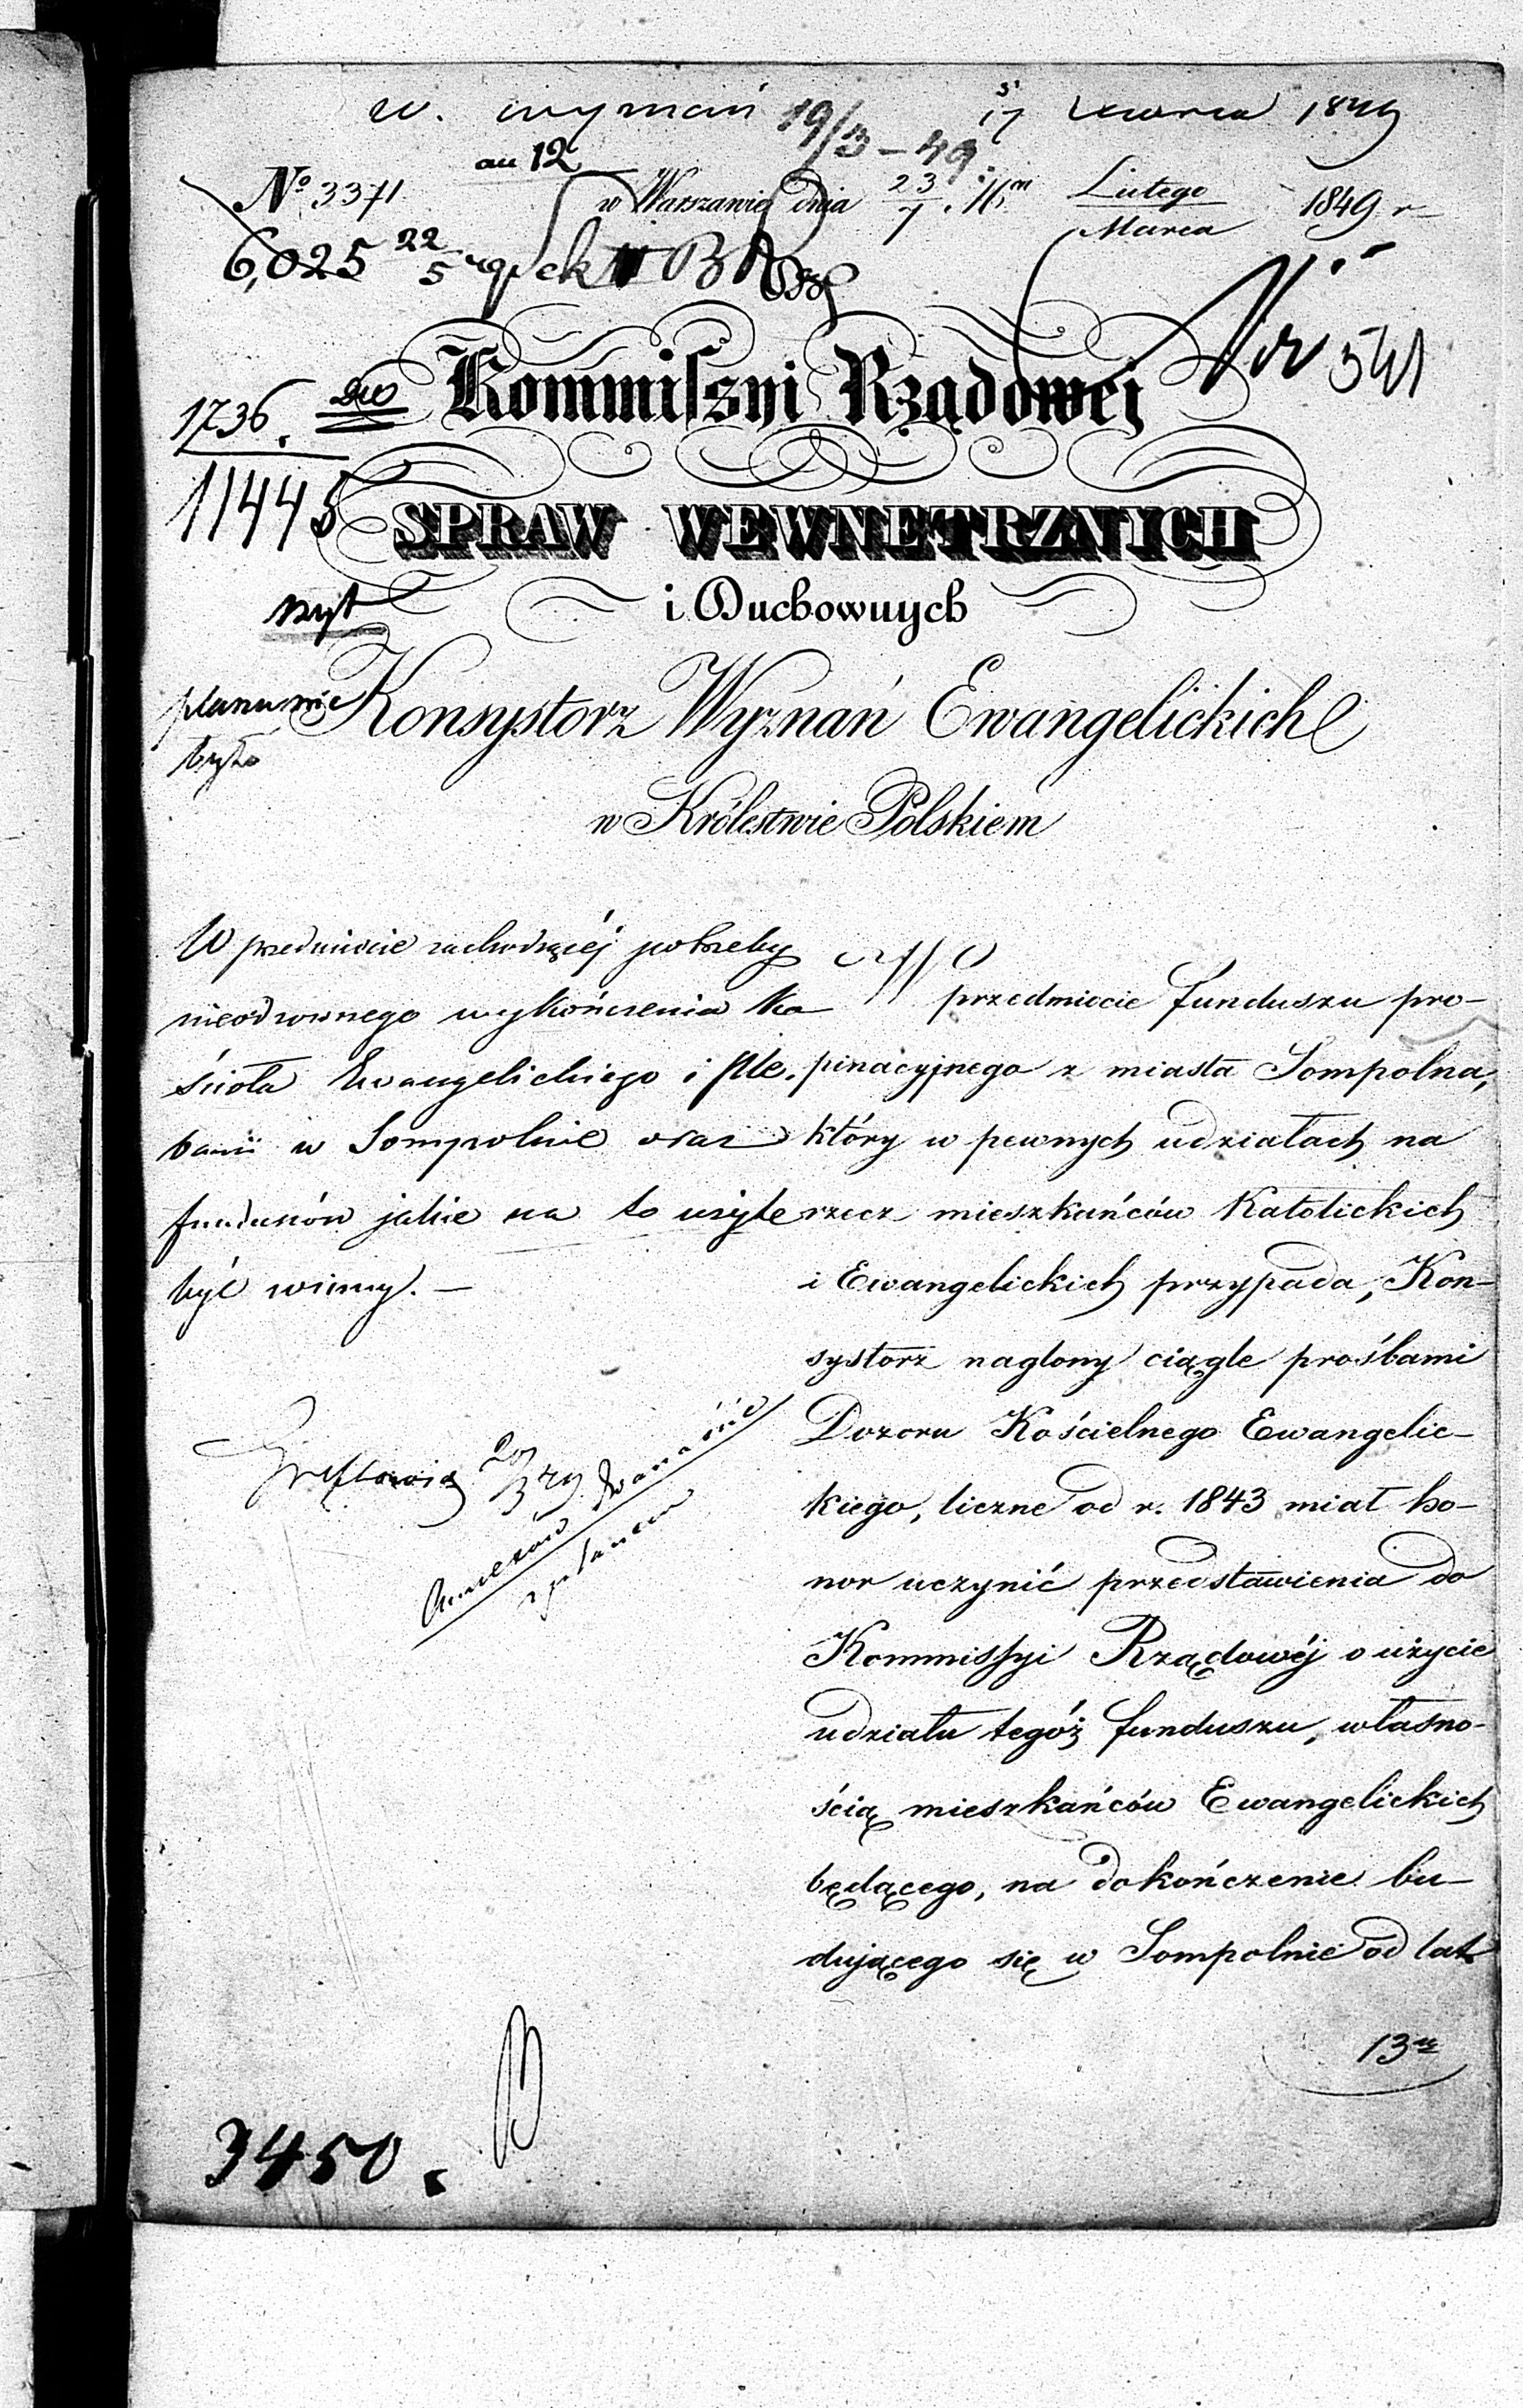 w. wyznań 19/3 – 49. 17 czerwca 1849
au 12
No 3371 w Warszawie dnia 23/7 Lutego/Marca 1849 r
6,025 22/5
No 541
1736.
Do Kommissyi Rządowej
11445
SPRAW WEWNETRZNYCH
i Duchownych
planu nie
było
Konsystorz Wyznań Ewangelickich
w Królestwie Polskiem
W przedmiocie zachodzącéj potrzeby
nieodzownego wykończenia Ko
ścioła Ewangelickiego i Ple.
banii w Sompolnie oraz
funduszów jakie na to użyte
być winny. –
W
przedmiocie funduszu pro-
pinacyjnego z miasta Sompolna,
który w pewnych udziałach na
rzecz mieszkańców Katolickich
i Ewangelickich przypada, Kon-
systorz naglony ciągle prośbami
Dozoru Kościelnego Ewangelic-
kiego, liczne od r. 1843 miał ho-
nor uczynić przedstawienia do
Kommissyi Rządowéj o użycie
udziału tegóż funduszu, własno-
ścią mieszkańców Ewangelickich
będącego, na dokończenie bu-
dującego się w Sompolnie od lat
13tu
3450.